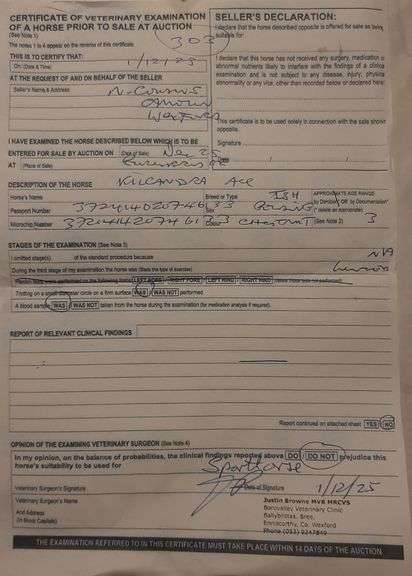 CERTIFICATE OF VETERINARY EXAMINATION
OF A HORSE PRIOR TO SALE AT AUCTION
(See Note 1)
303
The notes 1 to 4 appear on the reverse of this certificate
THIS IS TO CERTIFY THAT:
On: (Date & Time) 1/12/25
AT THE REQUEST OF AND ON BEHALF OF THE SELLER
Seller's Name & Address N. Cousins
Wexford
SELLER'S DECLARATION:
I declare that the horse described opposite is offered for sale as being
suitable for:
I declare that this horse has not received any surgery, medication or
abnormal nutrients likely to interfere with the findings of a clinical
examination and is not subject to any disease, injury, physical
abnormality or any vice, other than recorded below or declared here:
This certificate is to be used solely in connection with the sale shown
opposite.
Signature
Date / /
I HAVE EXAMINED THE HORSE DESCRIBED BELOW WHICH IS TO BE
ENTERED FOR SALE BY AUCTION ON (Date of Sale)
AT (Place of Sale)
DESCRIPTION OF THE HORSE
Horse's Name KILCANDRA ACE
Breed or Type ISH
APPROXIMATE AGE RANGE
by Dentition* OR by Documentation*
(* delete as appropriate)
Passport Number
Sex Gelding
Microchip Number
Colour CHESTNUT
(See Note 2) 3
STAGES OF THE EXAMINATION (See Note 3)
I omitted stage(s) of the standard procedure because N/A
During the third stage of my examination the horse was (State the type of exercise)
Flexion tests were performed on the following limbs LEFT FORE RIGHT FORE LEFT HIND RIGHT HIND
Trotting on a small diameter circle on a firm surface WAS / WAS NOT performed
A blood sample WAS / WAS NOT taken from the horse during the examination (for medication analysis if required).
REPORT OF RELEVANT CLINICAL FINDINGS
Report continued on attached sheet YES / NO
OPINION OF THE EXAMINING VETERINARY SURGEON (See Note 4)
In my opinion, on the balance of probabilities, the clinical findings reported above DO / DO NOT prejudice this
horse's suitability to be used for Sporthorse
Veterinary Surgeon's Signature
Date of Signature 1/12/25
Veterinary Surgeon's Name
And Address
(In Block Capitals)
Justin Browne MVB MRCVS
Borovalley Veterinary Clinic
Ballybrotas, Bree,
Enniscorthy, Co. Wexford
Phone (053) 9247849
THE EXAMINATION REFERRED TO IN THIS CERTIFICATE MUST TAKE PLACE WITHIN 14 DAYS OF THE AUCTION